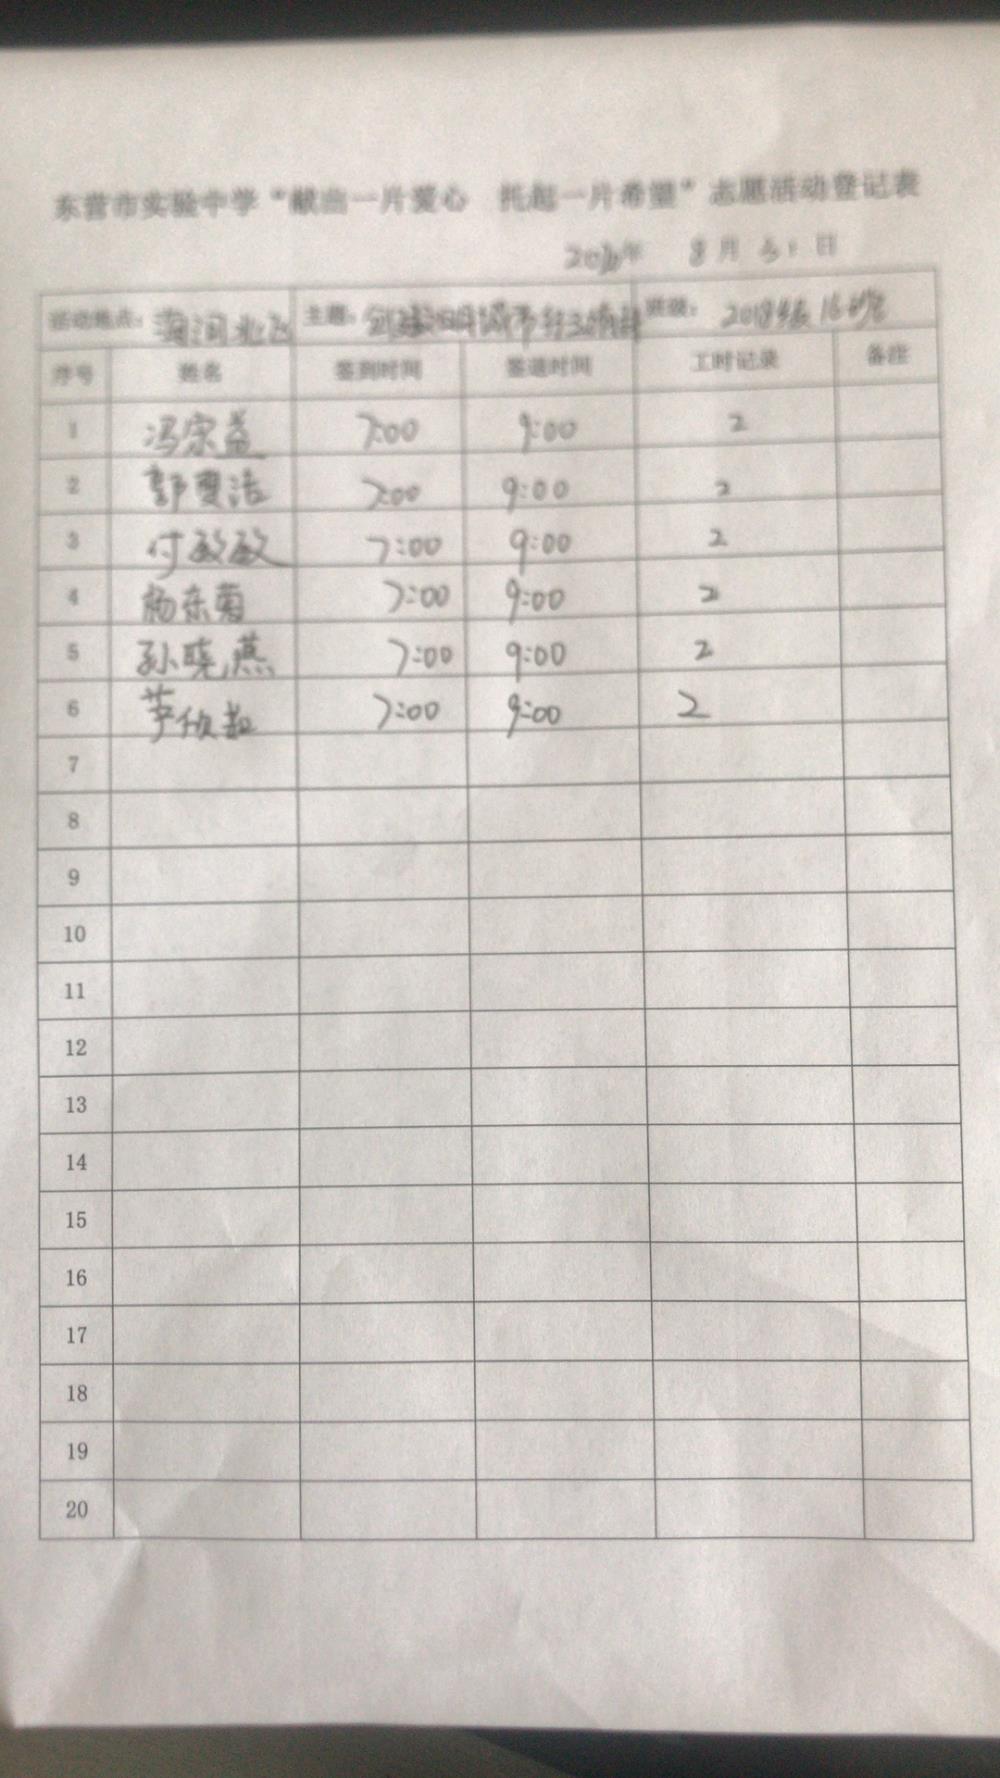 东营市实验中学“献出一片爱心 托起一片希望”志愿活动登记表
年 8月31日
活动地点: 主题: 创建文明城市 班级: 2018级16班
序号 姓名 签到时间 签退时间 工时记录 备注
1 冯宗益 7:00 9:00 2
2 郭 洁 7:00 9:00 2
3 付敏敏 7:00 9:00 2
4 杨东菊 7:00 9:00 2
5 孙晓燕 7:00 9:00 2
6 7:00 9:00 2
7
8
9
10
11
12
13
14
15
16
17
18
19
20